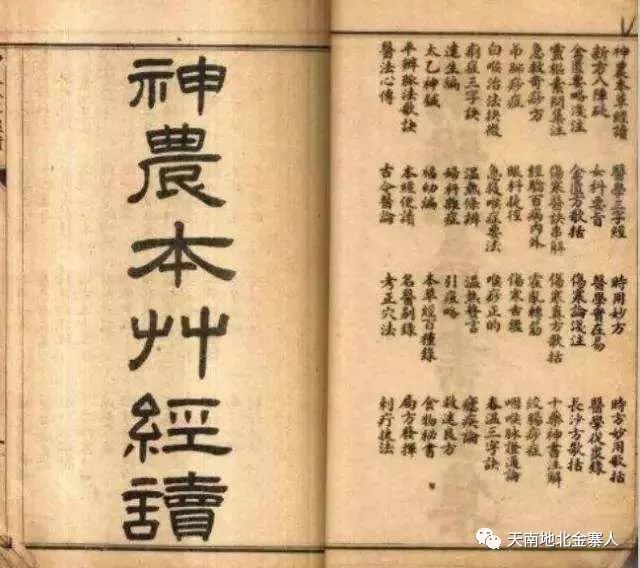 神農本草經讀 醫學三字經 時用妙方 時方妙用歌括
新方八陣砭 女科要旨 醫學實在易 醫學從衆錄
金匱要略淺注 金匱方歌括 傷寒論淺注 長沙方歌括
靈樞素問集注 傷寒醫訣串解 傷寒真方歌括 十藥神書注解
急救奇妙方 經驗百病內外 霍亂轉筋 絞腸痧症
弔腳痧症 眼科捷徑 傷寒舌鑑 咽喉脉證通論
白喉治法抉微 急救喉症要法 喉痧正的 春溫三字訣
症三字訣 溫熱條辨 溫熱贅言 瘧疾論
達生編 婦科雜症 引痘略 救迷良方
太乙神鍼 福幼編 本草經百種錄 食物秘書
平辨脉法歌訣 本經便讀 名醫別錄 局方發揮
醫法心傳 古今醫論 考正穴法 刺疔捷法
神農本艸經讀
天南地北金寨人